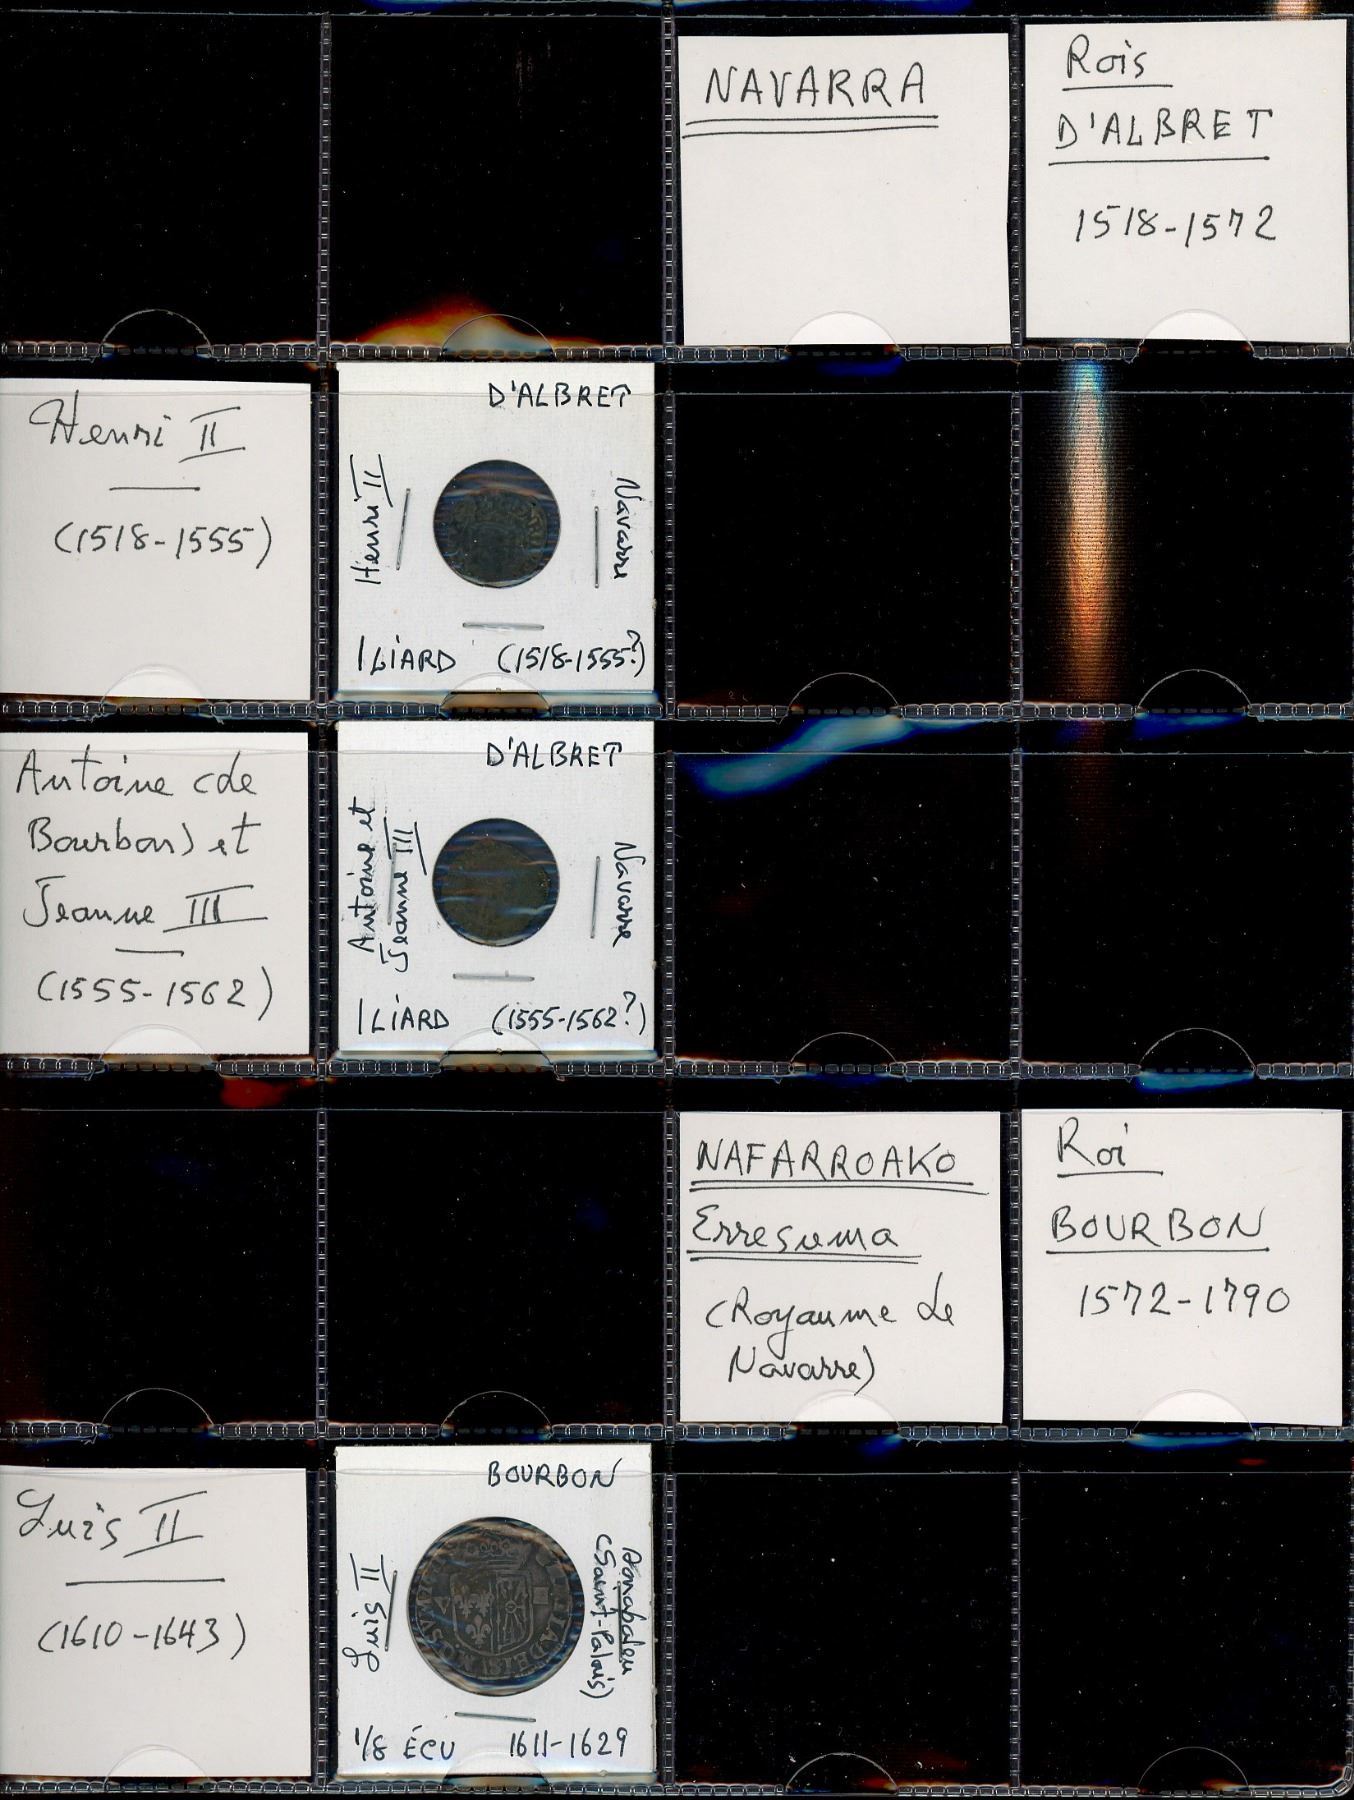 NAVARRA
Rois
D'ALBRET
1518-1572
Henri II
(1518-1555)
D'ALBRET
Henri II
Navarre
1 LIARD (1518-1555?)
Antoine (de
Bourbon) et
Jeanne III
(1555-1562)
D'ALBRET
Antoine et
Jeanne III
Navarre
1 LIARD (1555-1562?)
NAFARROAKO
Erresuma
(Royaume de
Navarre)
Roi
BOURBON
1572-1790
Luis II
(1610-1643)
BOURBON
Luis II
Donapaleu
(Saint-Palais)
1/8 ÉCU 1611-1629